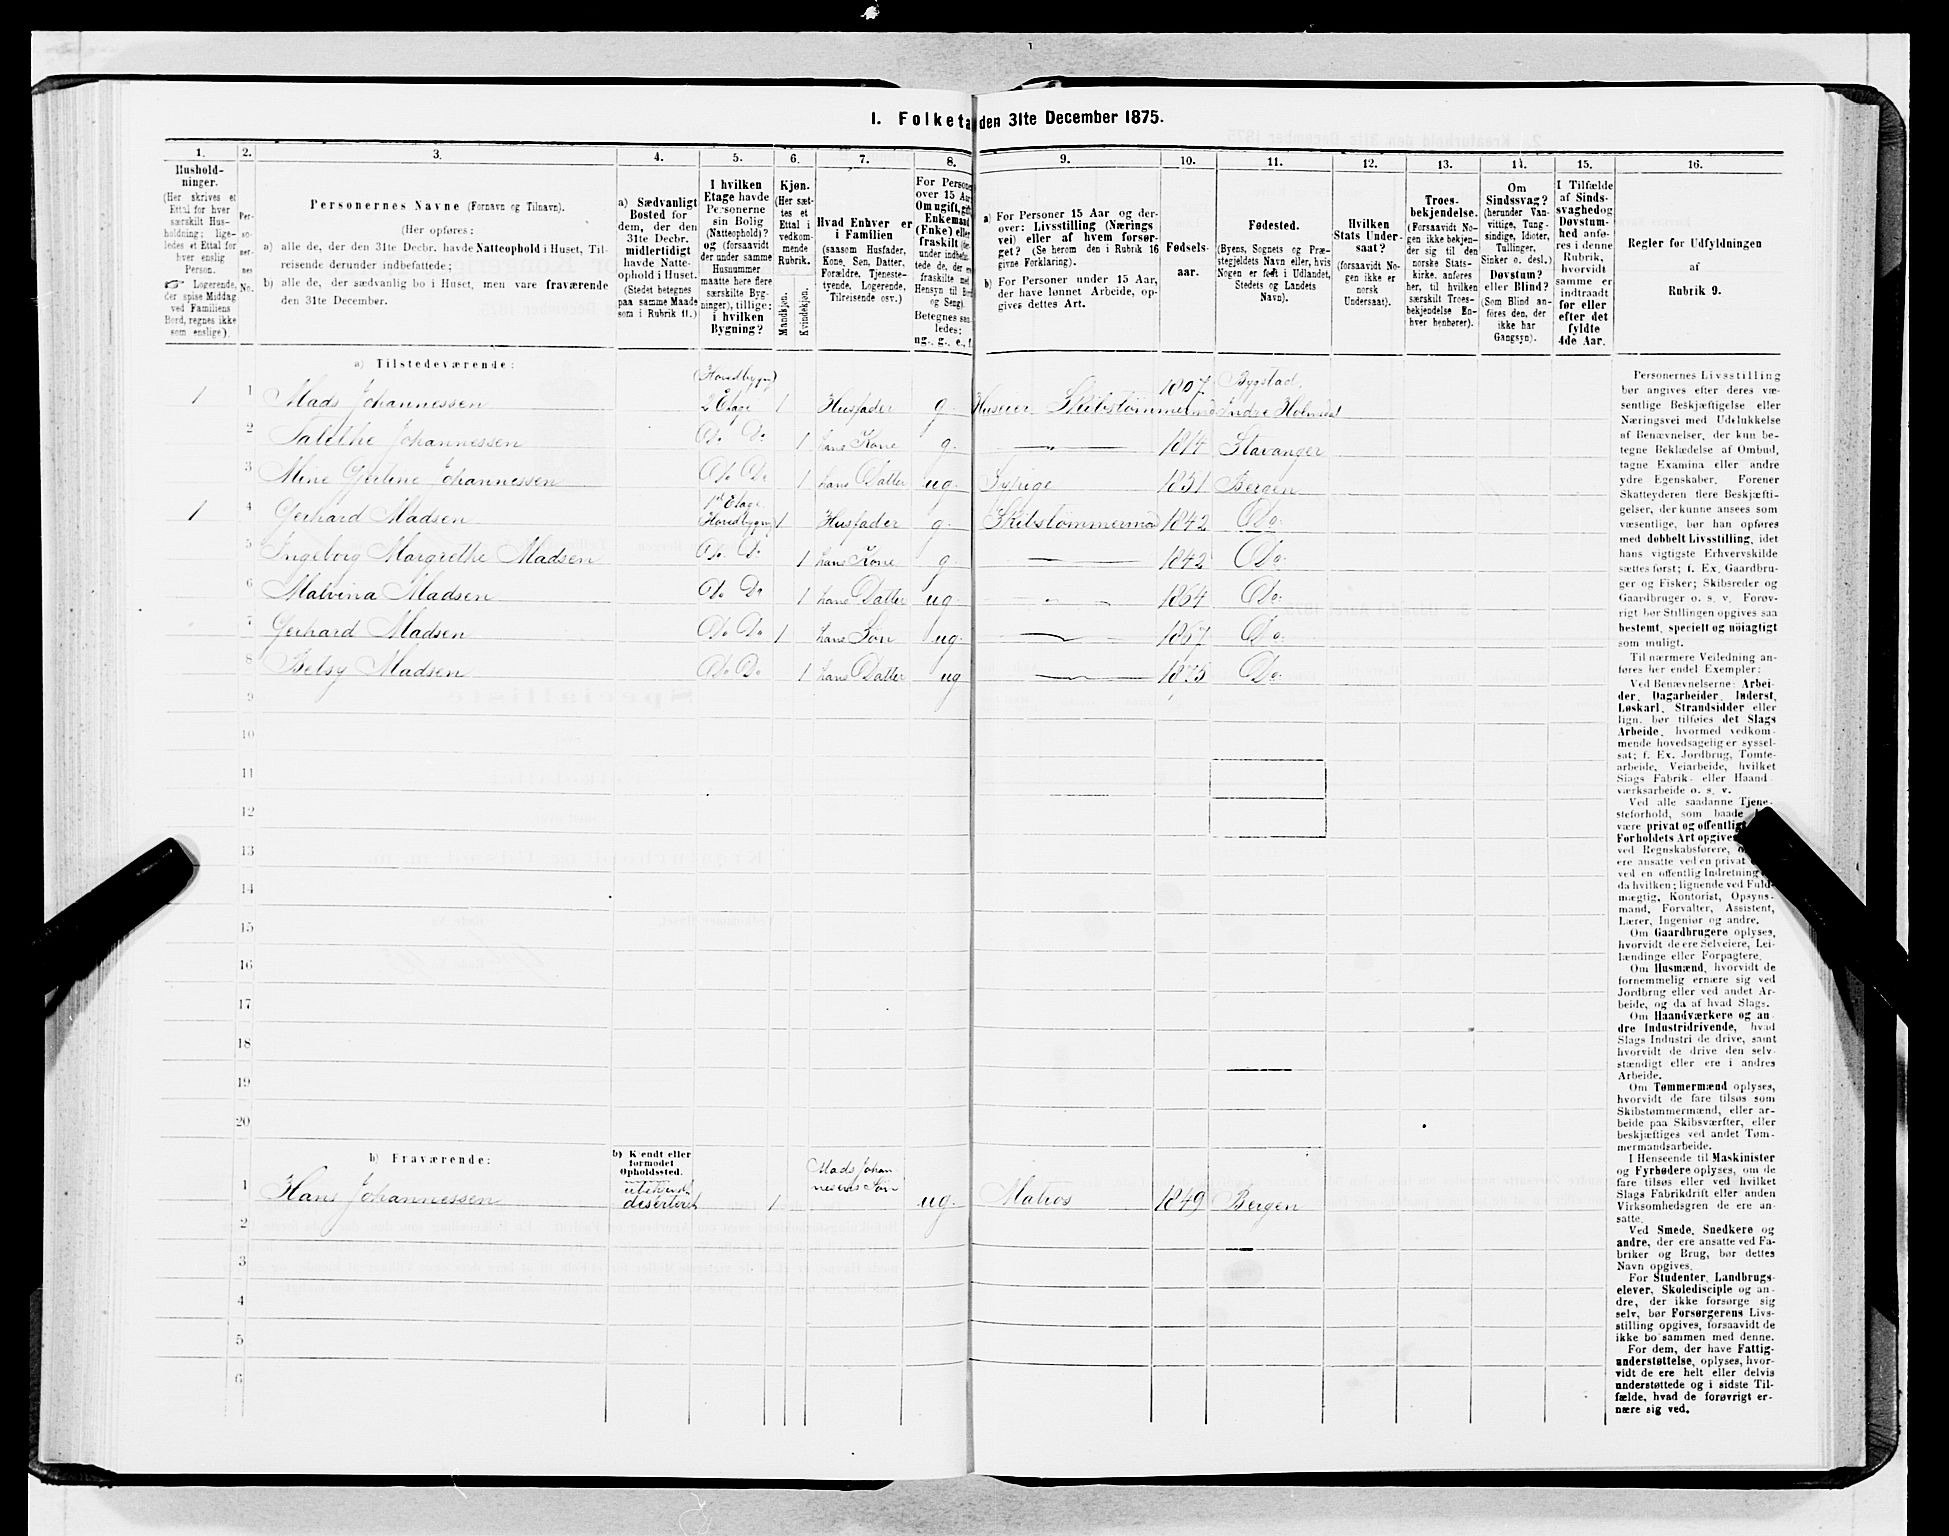 I. Folketæ den 31te December 1875.
1.
Hushold-
ninger.
(Her skrives et
Ettal for hver
særskilt Hus-
holdning; lige-
ledes et Ettal for
hver enslig
Person.
☞ Logerende,
der spise Middag
ved Familiens
Bord, regnes ikke
som enslige).
2.
Per-
so-
ner-
nes
No.
3.
Personernes Navne (Fornavn og Tilnavn).
(Her opføres:
a) alle de, der den 31te Decbr. havde Natteophold i Huset, Til-
reisende derunder indbefattede;
b) alle de, der sædvanlig bo i Huset, men vare fraværende
den 31te December.
4.
a) Sædvanligt
Bosted for
dem, der den
31te Decbr.
midlertidigt
havde Natte-
ophold i Huset.
(Stedet betegnes
paa samme Maade
som i Rubrik 11.)
5.
I hvilken
Etage havde
Personerne
sin Bolig
(Natteophold)?
og (forsaavidt
der under samme
Husnummer
maatte høre flere
særskilte Byg-
ninger), tillige:
i hvilken
Bygning?
6.
Kjøn.
(Her sæt-
tes et
Ettal i
vedkom-
mende
Rubrik.)
Mandkjøn.
Kvindekjøn.
7.
Hvad Enhver er
i Familien
(saasom Husfader,
Kone, Søn, Datter,
Forældre, Tjeneste-
tyende, Logerende,
Tilreisende osv.)
8.
For Persone
over 15 Aar
Om ugift, gif
Enkemand
(Enke) eller
fraskilt (der
under indbefat-
tede de, der er
fraskilte med
Hensyn til Bord
og Seng).
Betegnes saa
ledes:
ug., g., e., f.
9.
a) For Personer 15 Aar og der-
over: Livsstilling (Nærings
vei) eller af hvem forsør-
get? (Se herom den i Rubrik 16
givne Forklaring).
b) For Personer under 15 Aar,
der have lønnet Arbeide, op-
gives dettes Art.
10.
Fødsels-
aar.
11.
Fødested.
(Byens, Sognets og Præ-
stegjeldets Navn eller, hvis
Nogen er født i Udlandet,
Stedets og Landets
Navn).
12.
Hvilken
Stats Under-
saat?
(forsaavidt No-
gen ikke er
norsk
Undersaat).
13.
Troes-
bekjendelse.
(Forsaavidt No-
gen ikke bekjen-
der sig til den
norske Stats-
kirke, anføres
her, til hvilken
særskilt Troes-
bekjendelse En-
hver henhører).
14.
Om
Sindssvag?
(herunder Van-
vittige, Tung-
sindige, Idioter,
Tullinger,
Sinker o. desl.)
Døvstum?
eller Blind?
(Som Blind an-
føres den, der
ikke har
Gangsyn).
15.
I Tilfælde
af Sinds-
svaghed og
Døvstum-
hed anfø-
res i denne
Rubrik,
hvorvidt
samme er
indtraadt
før eller
efter det
fyldte
4de Aar.
16.
Regler for Udfyldningen
af
Rubrik 9.
a) Tilstedeværende:
1 1 Mads Johannessen (Hovedbygn) 2 Etage 1 Husfader g. Huseier Skibstømmermd 1807 Bygstad, Indre Holmedal
2 Talethe Johannessen Do Do 1 hans Kone g. — " — 1814 Stavanger
3 Mine Gertine Johannessen Do Do 1 hans Datter ug. Sypige 1851 Bergen
1 4 Gerhard Madsen 1st Etage Hovedbygn 1 Husfader g. Skibstømmermd 1842 Do
5 Ingeborg Margrethe Madsen Do Do 1 hans Kone g. — 1842 Do
6 Malvina Madsen Do Do 1 hans Datter ug. — " — 1864 Do
7 Gerhard Madsen Do Do 1 hans Søn ug. — 1867 Do
8 Betsy Madsen Do Do 1 hans Datter ug — 1875 Do
9
10
11
12
13
14
15
16
17
18
19
20
b) Fraværende:
b) Kjendt eller
formodet
Opholdssted.
1 Hans Johannessen ubekjendt deserteret 1 Mads Johan- nesens Søn ug. Matros 1849 Bergen
2
3
4
5
6
Personernes Livsstilling
bør angives efter deres væ-
sentlige Beskjæftigelse eller
Næringsvei med Udelukkelse
af Benævnelser, der kun be-
tegne Beklædelse af Ombud,
tagne Examina eller andre
ydre Egenskaber. Forener
Skatteyderen flere Beskjæfti-
gelser, der kunne ansees som
væsentlige, bør han opføres
med dobbelt Livsstilling, idet
hans vigtigste Erhvervskilde
sættes først; f. Ex. Gaardbru-
ger og Fisker; Skibsreder og
Gaardbruger o. s. v. Forøv-
rigt bør Stillingen opgives saa
bestemt, specielt og nöiagtigt
som muligt.
Til nærmere Veiledning an-
føres her endel Exempler:
Ved Benævnelserne: Arbei-
der, Dagarbeider, Inderst,
Løskarl, Strandsidder eller
lign. bør tilføies det Slags
Arbeide, hvormed vedkom-
mende hovedsagelig er syssel-
sat; f. Ex. Jordbrug, Tomte-
arbeide, Veiarbeide, hvilket
Slags Fabrik- eller Haand-
værksarbeide o. s. v.
Ved alle saadanne Tjene-
steforhold, som baade
være privat og offentlig
Forholdets Art opgives
ved Regnskabsførere,
ere ansatte ved en privat
ved en offentlig Indretning
da hvilken; lignende ved Fuld-
mægtig, Kontorist, Opsyns-
mand, Forvalter, Assistent,
Lærer, Ingeniør og andre.
Om Gaardbrugere oplyses,
hvorvidt de ere Selveiere, Lei-
lændinge eller Forpagtere.
Om Husmænd, hvorvidt de
fornemmelig ernære sig ved
Jordbrug eller ved andet Ar-
beide, og da af hvad Slags.
Om Haandværkere og an
dre Industridrivende, hvad
Slags Industri de drive, samt
hvorvidt de drive den selv-
stændigt eller ere i andres
Arbeide.
Om Tømmermænd oplyses,
hvorvidt de fare tilsøs som
Skibstømmermænd, eller ar-
beide paa Skibsværfter, eller
beskjæftiges ved andet Tøm-
mermandsarbeide.
I Henseende til Maskinister
og Fyrbødere oplyses, om de
fare tilsøs eller ved hvilket
Slags Fabrikdrift eller anden
Virksomhedsgren de ere an-
satte.
Ved Smede, Snedkere og
andre, der ere ansatte ved Fa-
briker og Brug, bør dettes
Navn opgives.
For Studenter, Landbrugs-
elever, Skoledisciple og an-
dre, der ikke forsørge sig
selv, bør Forsørgerens Livs-
stilling opgives, forsaavidt de
ikke bo sammen med denne.
For dem, der have Fattig-
understøttelse, oplyses, hvor-
vidt de ere helt eller delvis
understøttede og i sidste Til-
fælde, hvad de forøvrigt er-
nære sig ved.